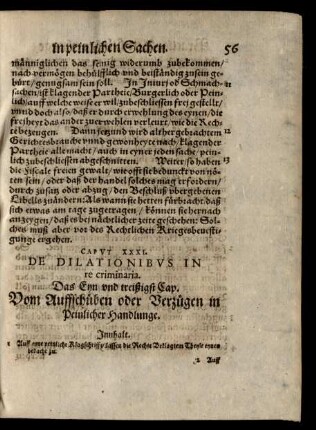 in peinlichen Sachen. 56
männiglichen das seinig widerumb zubekommen/
nach vermögen behülfflich vnd beiständig zusein ge-
bürt/ genugsam sein soll. In Iniuri od Schmach- 11
sachen/ ist klagender Partheie/ Burgerlich oder Pein-
lich/ auff welche weise er wil/ zubeschliessen frei gestellt/
vnnd doch also/ daß er durch erwehlung des eynen/ die
freiheyt das ander zuerwehlen verleurt/ wie die Rech-
te bezeugen. Dann seynd wird alther gebrachtem 12
Gerichtsbrauche vnnd gewonheyt nach/ klagender
Partheie alle macht/ auch in eyner jeden sache/ pein-
lich zubeschliessen abgeschnitten. Weiter/ so haben 13
die Fiscale freien gewalt/ wie offt sie bedunckt von nö-
ten sein/ oder daß der handel solches mag erfordern/
durch zusatz oder abzug/ den Beschluß vbergebenen
Libells zuändern: Als wann sie hetten fürbracht/ daß
sich etwas am tage zugetragen/ können sie hernach
anzeygen/ daß es bei nächtlicher zeite geschehen: Sol-
ches muß aber vor des Rechtlichen Kriegsbeuesti-
gunge ergehen.
CAPVT XXXI.
DE DILATIONIBVS IN
re criminaria.
Das Eyn vnd treissigst Cap.
Vom Auffschüben oder Verzügen in
Peinlicher Handlunge.
Innhalt.
1 Auff eyne peinliche Klagschrifft lassen die Rechte Beklagtem Theyle eynen
bedacht zu.
2 Auff